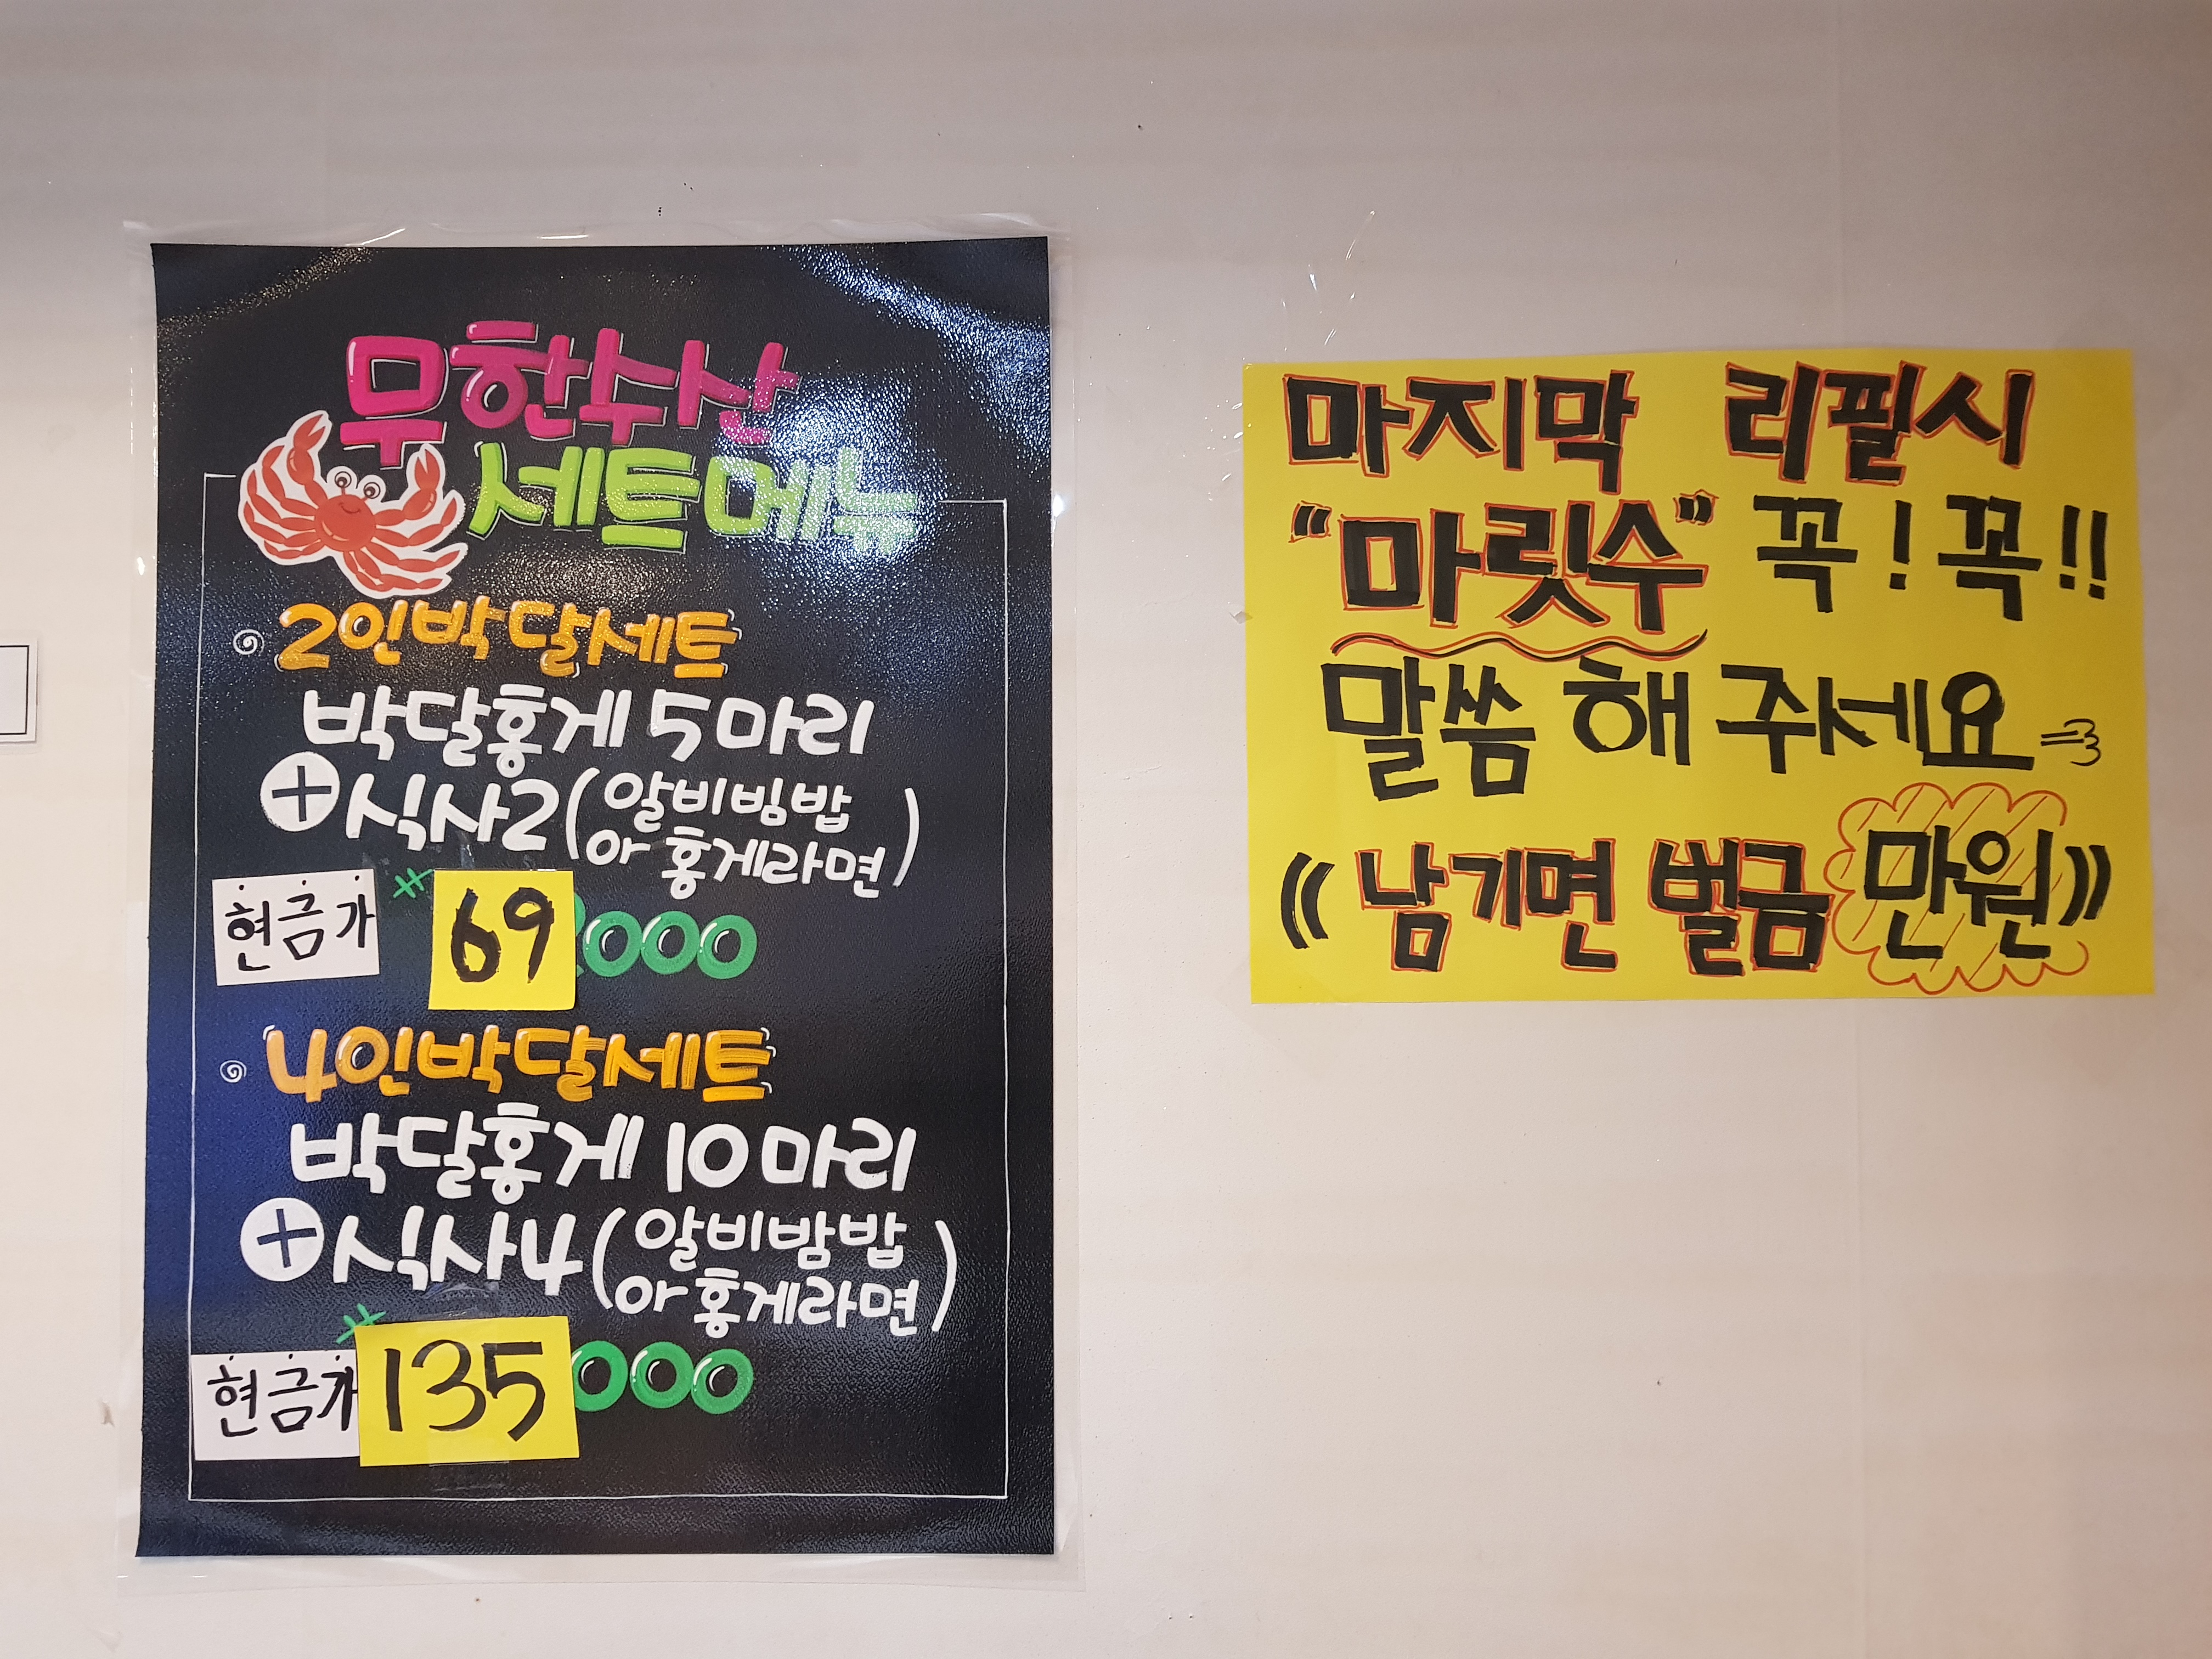 무한수산
세트메뉴
2인박달세트
박달홍게 5마리
+식사2(알비빔밥
or 홍게라면)
현금가 69000
4인박달세트
박달홍게 10마리
+식사4(알비밤밥
or 홍게라면)
현금가 135000
마지막 리필시
"마릿수" 꼭! 꼭!!
말씀 해 주세요
(( 남기면 벌금 만원))